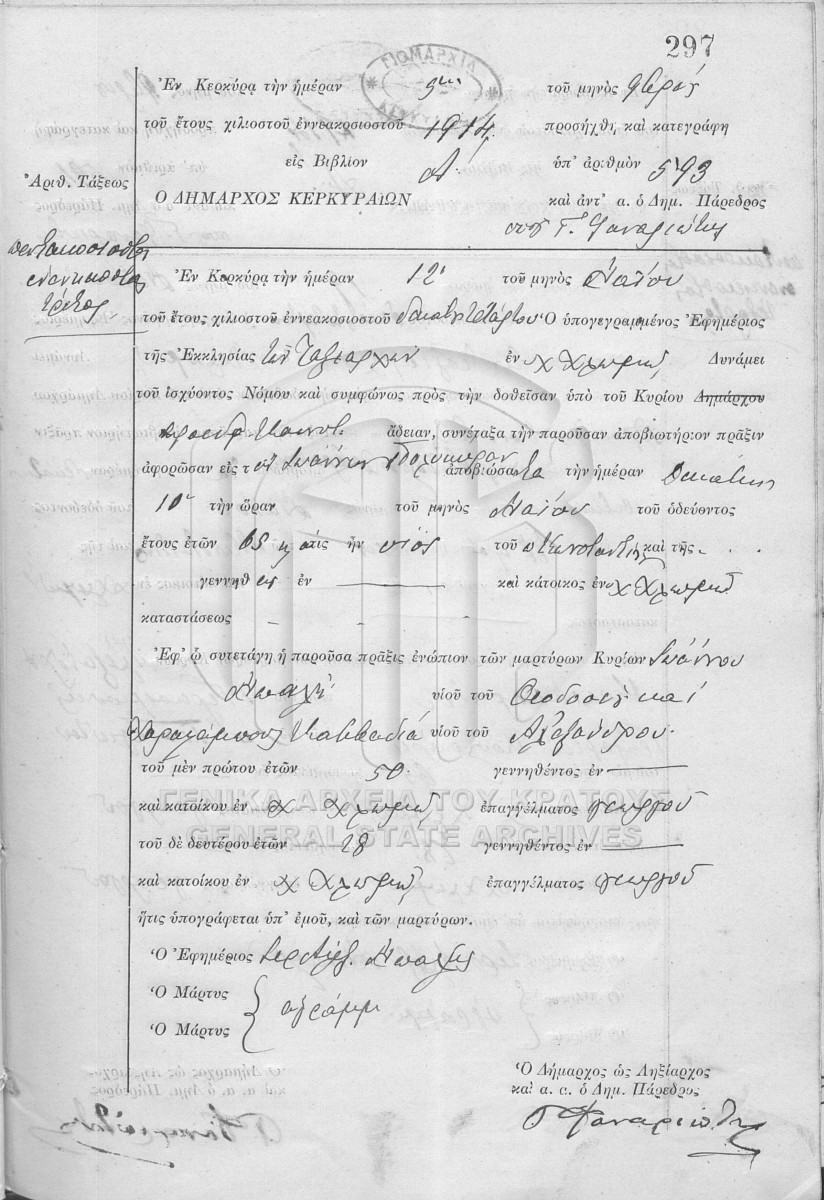 297
ΔΗΜΑΡΧΙΑ
Ἐν Κερκύρᾳ τὴν ἡμέραν 9ην τοῦ μηνὸς
τοῦ ἔτους χιλιοστοῦ ἐννεακοσιοστοῦ 1914 προσήχθη καὶ κατεγράφη
εἰς Βιβλίον Α. ὑπ' ἀριθμὸν 593
Ἀριθ. Τάξεως
Ο ΔΗΜΑΡΧΟΣ ΚΕΡΚΥΡΑΙΩΝ καὶ ἀντ' α. ὁ Δημ. Πάρεδρος
Γ. Φαναριώτης
πεντακοσιοστὸς
ἐνενηκοστὸς
τρίτος
Ἐν Κερκύρᾳ τὴν ἡμέραν 12 τοῦ μηνὸς Μαΐου
τοῦ ἔτους χιλιοστοῦ ἐννεακοσιοστοῦ δεκάτου τετάρτου Ὁ ὑπογεγραμμένος Ἐφημέριος
τῆς Ἐκκλησίας τῶν Ταξιαρχῶν ἐν χ Χλωμοῦ Δυνάμει
τοῦ ἰσχύοντος Νόμου καὶ συμφώνως πρὸς τὴν δοθεῖσαν ὑπὸ τοῦ Κυρίου Δημάρχου
προέδρ. Κοινοτ. ἄδειαν, συνέταξα τὴν παροῦσαν ἀποβιωτήριον πρᾶξιν
ἀφορῶσαν εἰς τὸν Ἰωάννην ἀποβιώσαντα τὴν ἡμέραν Δεκάτην
10 τὴν ὥραν τοῦ μηνὸς Μαΐου τοῦ ὁδεύοντος
ἔτους ἐτῶν 65 ὅστις ἦν υἱὸς τοῦ Κωνσταντίν καὶ τῆς
γεννηθεὶς ἐν καὶ κάτοικος ἐν χ Χλωμοῦ
καταστάσεως
Ἐφ' ᾧ συνετάγη ἡ παροῦσα πρᾶξις ἐνώπιον τῶν μαρτύρων Κυρίων Ἰωάννου
υἱοῦ τοῦ Θεοδοσίου καὶ
Χαραλάμπους Καββαδιά υἱοῦ τοῦ Ἀλεξάνδρου
τοῦ μὲν πρώτου ἐτῶν 50 γεννηθέντος ἐν
καὶ κατοίκου ἐν χ Χλωμοῦ ἐπαγγέλματος γεωργοῦ
ΓΕΝΙΚΑ ΑΡΧΕΙΑ ΤΟΥ ΚΡΑΤΟΥΣ
GENERAL STATE ARCHIVES
τοῦ δὲ δευτέρου ἐτῶν 28 γεννηθέντος ἐν
καὶ κατοίκου ἐν χ Χλωμοῦ ἐπαγγέλματος γεωργοῦ
ἥτις ὑπογράφεται ὑπ' ἐμοῦ, καὶ τῶν μαρτύρων.
Ὁ Ἐφημέριος
Ὁ Μάρτυς
ἀγράμμ
Ὁ Μάρτυς
Ὁ Δήμαρχος ὡς Ληξίαρχος
καὶ α. α. ὁ Δημ. Πάρεδρος
Γ Φαναριώτης